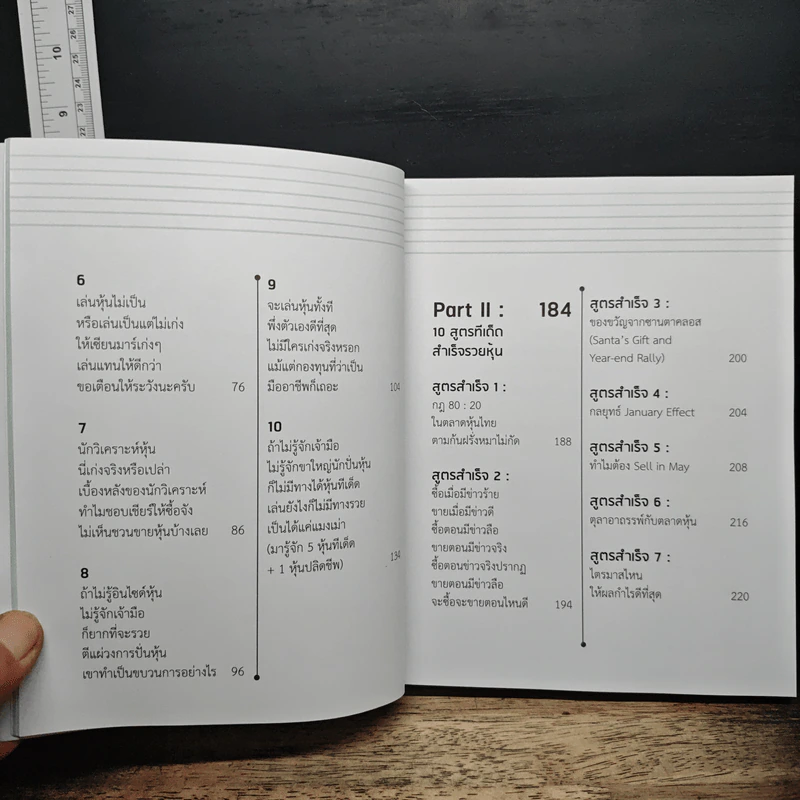 27
26
25
24
23
22
10
9
6
เล่นหุ้นไม่เป็น
หรือเล่นเป็นแต่ไม่เก่ง
ให้เซียนมาร์เก่งๆ
เล่นแทนให้ดีกว่า
ขอเตือนให้ระวังนะครับ 76
7
นักวิเคราะห์หุ้น
นี่เก่งจริงหรือเปล่า
เบื้องหลังของนักวิเคราะห์
ทำไมชอบเชียร์ให้ซื้อจัง
ไม่เห็นชวนขายหุ้นบ้างเลย 86
8
ถ้าไม่รู้อินไซด์หุ้น
ไม่รู้จักเจ้ามือ
ก็ยากที่จะรวย
ตีแผ่วงการปั่นหุ้น
เขาทำเป็นขบวนการอย่างไร 96
9
จะเล่นหุ้นทั้งที
พึ่งตัวเองดีที่สุด
ไม่มีใครเก่งจริงหรอก
แม้แต่กองทุนที่ว่าเป็น
มืออาชีพก็เถอะ 104
10
ถ้าไม่รู้จักเจ้ามือ
ไม่รู้จักขาใหญ่นักปั่นหุ้น
ก็ไม่มีทางได้หุ้นทีเด็ด
เล่นยังไงก็ไม่มีทางรวย
เป็นได้แค่แมงเม่า
(มารู้จัก 5 หุ้นทีเด็ด
+ 1 หุ้นปลิดชีพ) 134
Part II : 184
10 สูตรทีเด็ด
สำเร็จรวยหุ้น
สูตรสำเร็จ 1 :
กฎ 80 : 20
ในตลาดหุ้นไทย
ตามก้นฝรั่งหมาไม่กัด 188
สูตรสำเร็จ 2 :
ซื้อเมื่อมีข่าวร้าย
ขายเมื่อมีข่าวดี
ซื้อตอนมีข่าวลือ
ขายตอนมีข่าวจริง
ซื้อตอนข่าวจริงปรากฏ
ขายตอนมีข่าวลือ
จะซื้อจะขายตอนไหนดี 194
สูตรสำเร็จ 3 :
ของขวัญจากซานตาคลอส
(Santa's Gift and
Year-end Rally) 200
สูตรสำเร็จ 4 :
กลยุทธ์ January Effect 204
สูตรสำเร็จ 5 :
ทำไมต้อง Sell in May 208
สูตรสำเร็จ 6 :
ตุลาอาถรรพ์กับตลาดหุ้น 216
สูตรสำเร็จ 7 :
ไตรมาสไหน
ให้ผลกำไรดีที่สุด 220